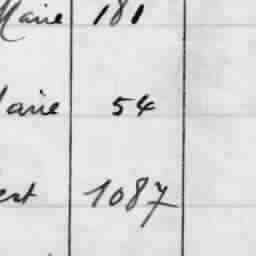 Marie 181
Marie 54
est 1087